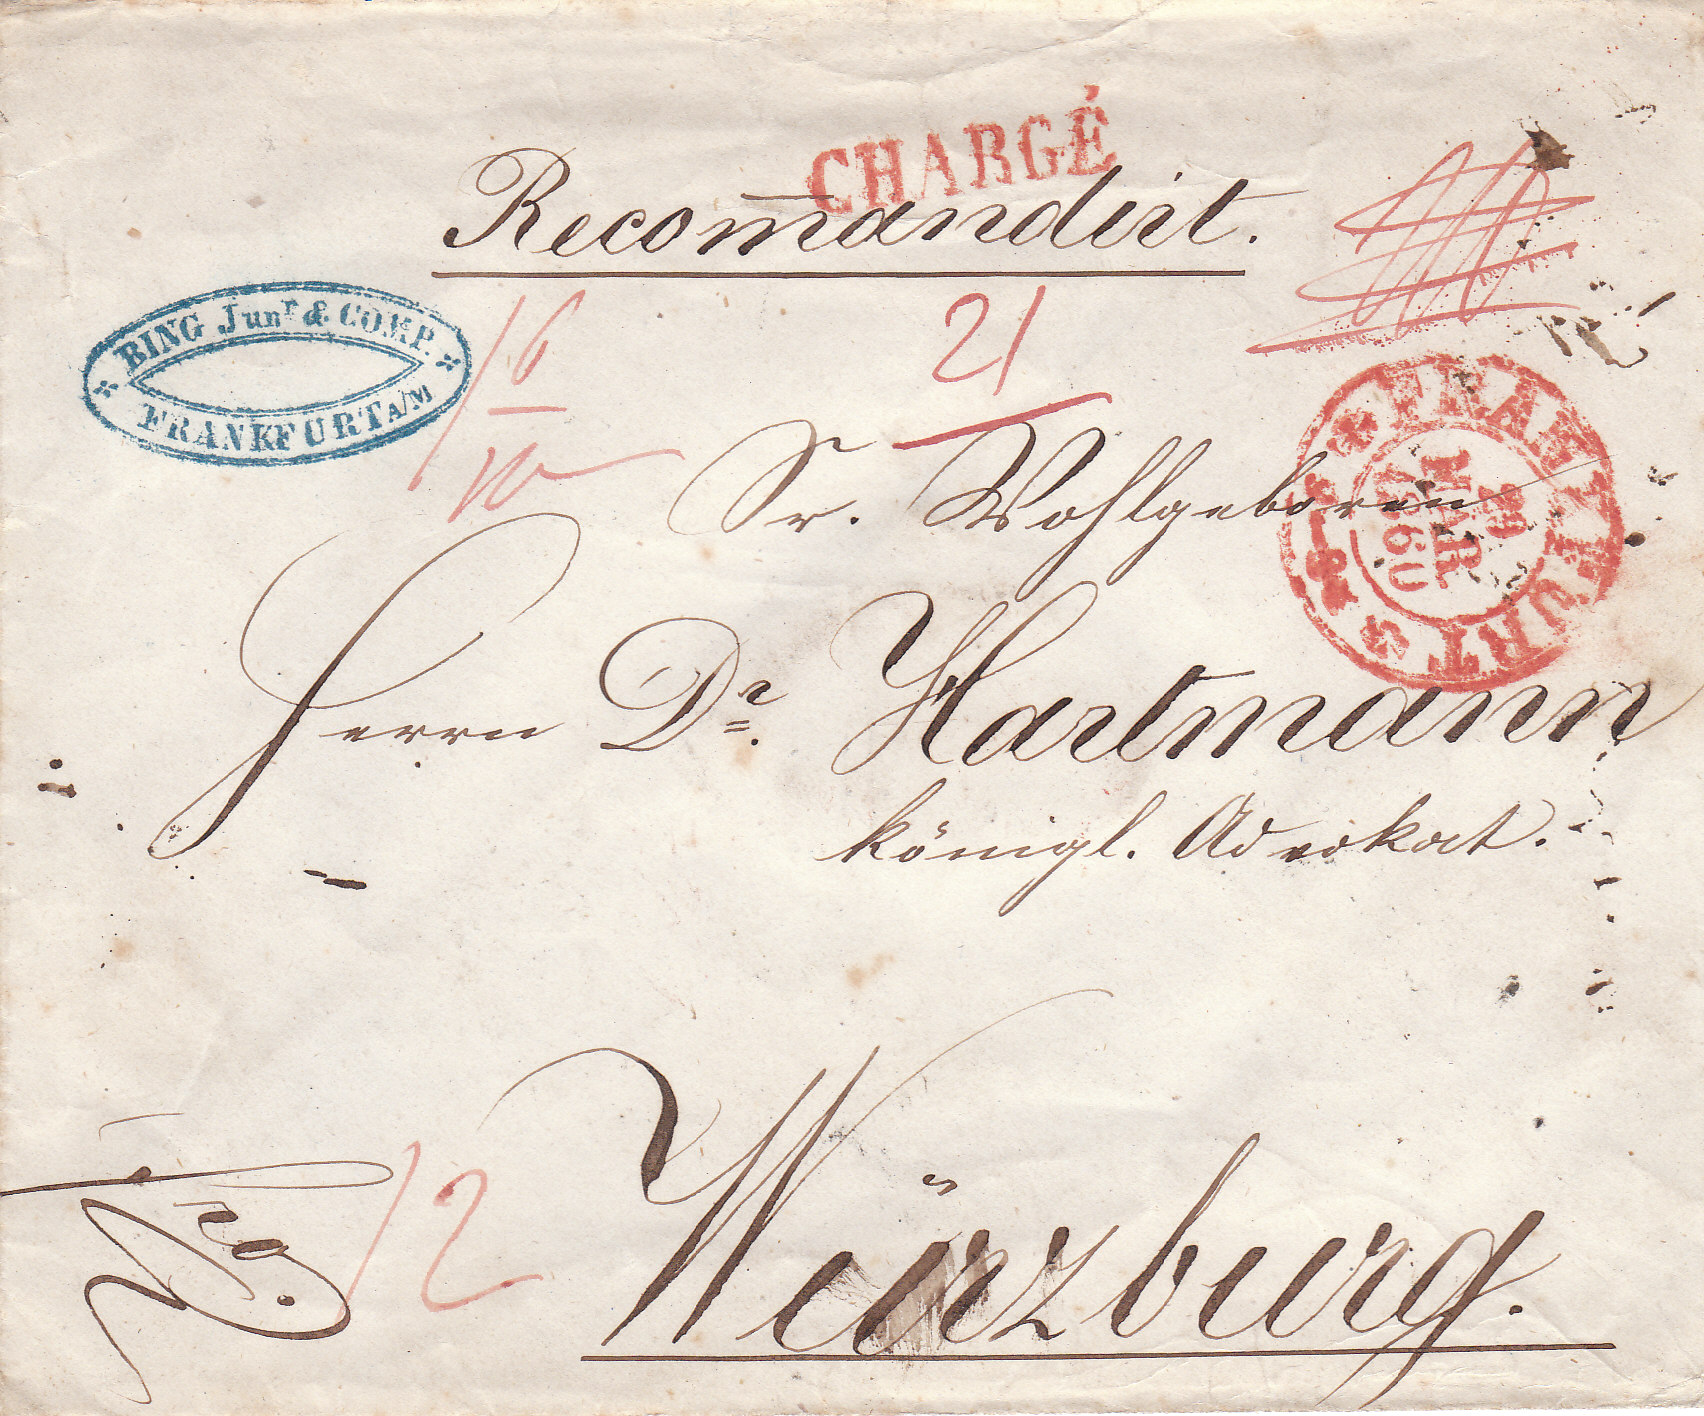 CHARGÉ
Recom̄andirt.
BING Junr & COMP.
FRANKFURT A/M
16
21
10
FRANKFURT
29
MAR
1860
Sr. Wohlgeboren
Herrn Dr. Hartmann
königl. Advokat.
frg.
12
Würzburg.